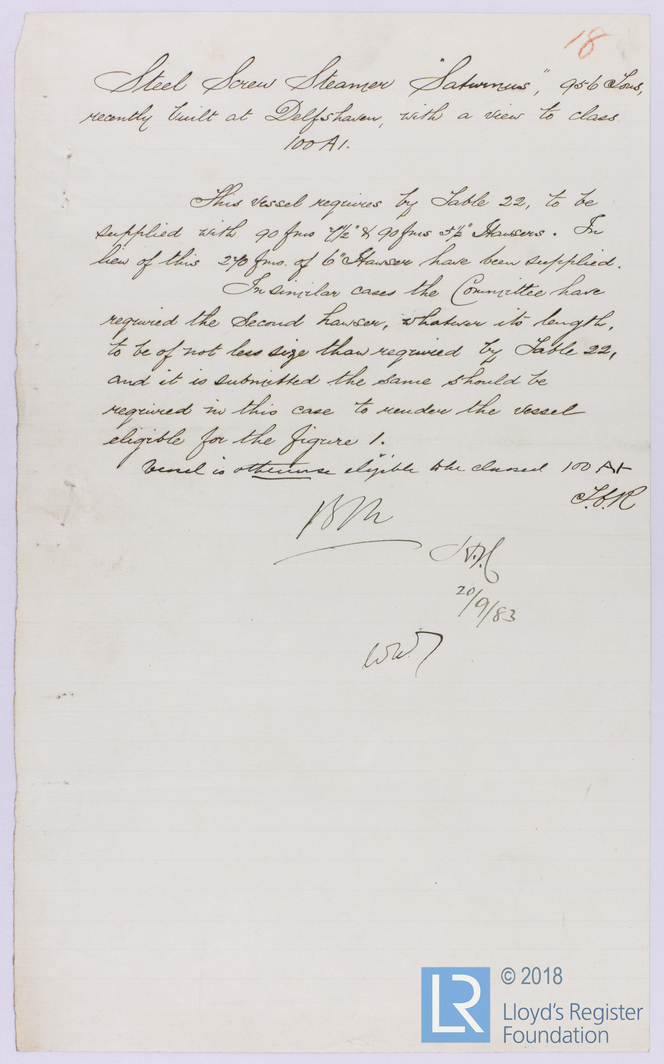 18
Steel Screw Steamer "Saturnus", 956 Tons,
recently built at Delfshaven, with a view to class
100 A1.
This vessel requires by Table 22, to be
supplied with 90 fms 7½" & 90 fms 5½" Hawsers. In
lieu of this 270 fms. of 6" Hawser have been supplied.
In similar cases the Committee have
required the second hawser, whatever its length,
to be of not less size than required by Table 22,
and it is submitted the same should be
required in this case to render the vessel
eligible for the figure 1.
Vessel is otherwise eligible to be classed 100 A1
20/9/83
LR
© 2018
Lloyd's Register
Foundation